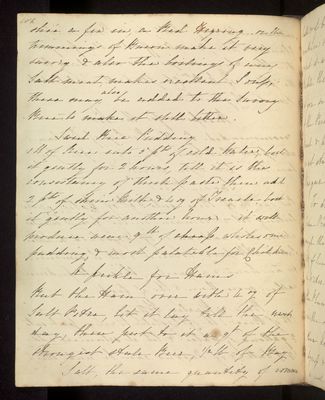 slice a fix in a Red Herring. on the
trimmings of Bacon make it very
savory & also the boilings of any
Salt meat makes excellent Soup
these may also be added to the Savory
Rice to make it still better.
Sweet Rice Pudding
1 lb of Rice into 5 pts of cold Water, boil
it gently for 2 hours, till it is the
consistency of thick paste then add
2 pts of skim Milk & 4 oz of Treacle boil
it gently for another hour it will
produce near 9 lb of wholesome
pudding & most palatable for Children
A pickle for Hams
Rub the Ham over with 4 oz of
Salt Petre, let it lay till the next
day, then put to it a qt of the
strongest stale Beer, ½ lb of Bay
Salt, the same quantity of common